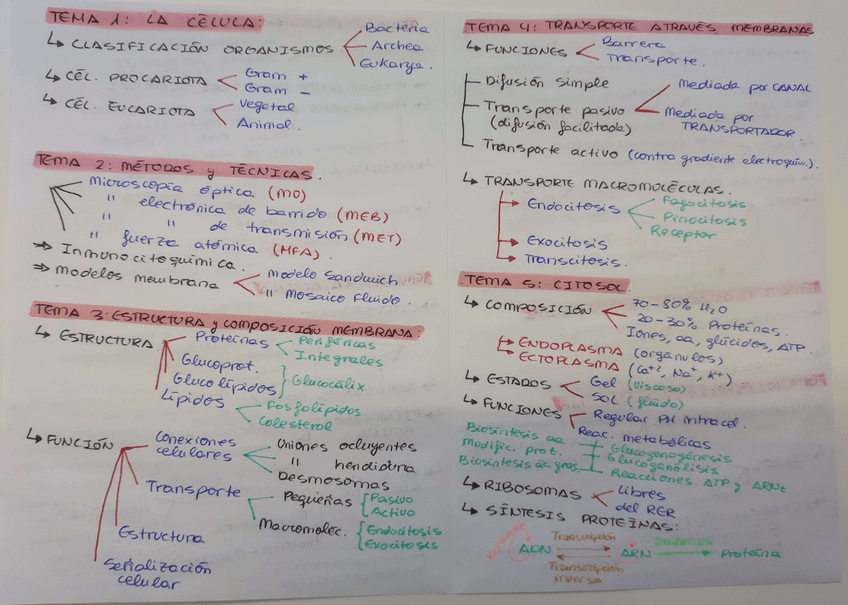 TEMA 1: LA CÉLULA:
↳ CLASIFICACIÓN ORGANISMOS
Bacteria
Archea
Eukarya.
↳ CÉL. PROCARIOTA
Gram +
Gram -
↳ CÉL. EUCARIOTA
Vegetal
Animal.
TEMA 2: MÉTODOS y TÉCNICAS.
Microscopía óptica (MO)
" electrónica de barrido (MEB)
" " de transmisión (MET)
" fuerza atómica (MFA).
⇒ Inmunocitoquímica.
⇒ modelos membrana
modelo Sandwich
" Mosaico Fluido.
TEMA 3: ESTRUCTURA y COMPOSICIÓN MEMBRANA:
↳ ESTRUCTURA
Proteínas
Periféricas
Integrales
Glucoprot.
Glucolípidos
} Glucocálix
Lípidos
Fosfolípidos
Colesterol
↳ FUNCIÓN
Conexiones
celulares
Uniones ocluyentes
" hendidura
Desmosomas
Transporte
Pequeñas { Pasivo
Activo
Macromolec. { Endocitosis
Exocitosis
Estructura
Señalización
celular
TEMA 4: TRANSPORTE ATRAVÉS MEMBRANAS
↳ FUNCIONES
Barrera
Transporte.
Difusión simple
Transporte pasivo
(difusión facilitada)
Mediada por CANAL
Mediada por
TRANSPORTADOR.
Transporte activo (contra gradiente electroquím.).
↳ TRANSPORTE MACROMOLÉCULAS.
Endocitosis
Fagocitosis
Pinocitosis
Receptor
Exocitosis
Transcitosis.
TEMA 5: CITOSOL.
↳ COMPOSICIÓN
70-80% H₂O
20-30% Proteínas.
Iones, aa, glúcidos, ATP.
ENDOPLASMA (orgánulos)
ECTOPLASMA (Ca⁺², Na⁺, K⁺)
↳ ESTADOS
Gel (viscoso)
SOL (fluido)
↳ FUNCIONES
Regular PH intracel.
Reac. metabólicas
Biosíntesis aa
Modific. prot.
Biosíntesis ác. gras.
Glucogenogénesis
Glucogenólisis
Reacciones ATP y ARNt
↳ RIBOSOMAS
Libres
del RER
↳ SÍNTESIS PROTEÍNAS:
ADN
Transcripción
Transcripción
inversa
ARN
Traducción
Proteína